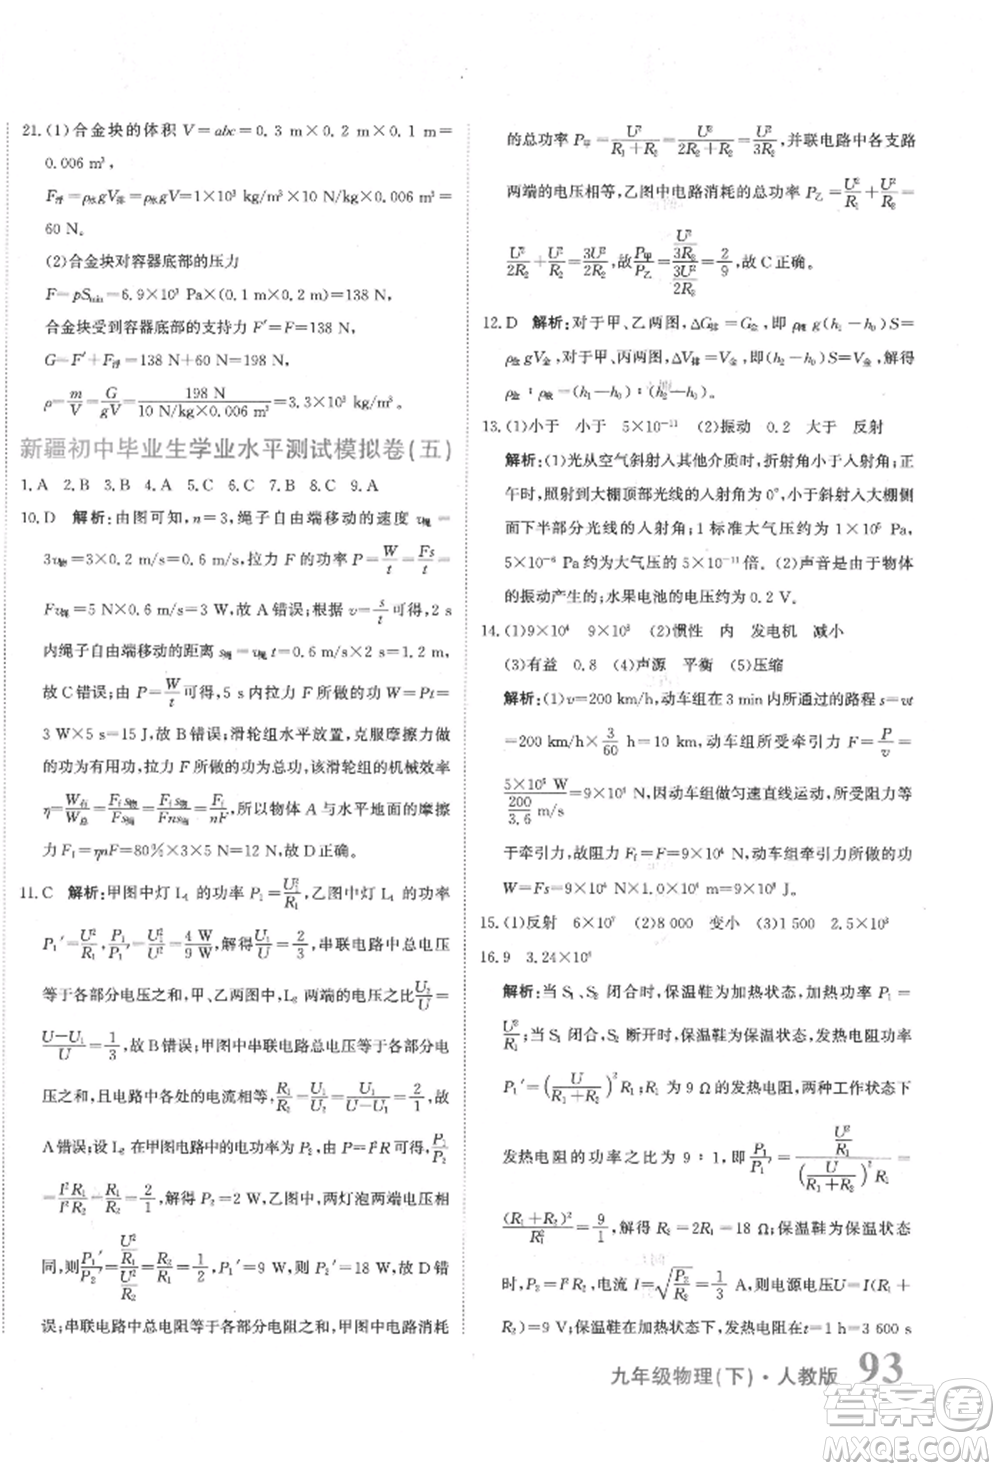 21. (1)合金块的体积 V＝abc＝0.3 m×0.2 m×0.1 m＝
0.006 m³，
F浮＝ρ水gV排＝ρ水gV＝1×10³ kg/m³×10 N/kg×0.006 m³＝
60 N。
(2)合金块对容器底部的压力
F＝pSmin＝6.9×10³ Pa×(0.1 m×0.2 m)＝138 N，
合金块受到容器底部的支持力 F′＝F＝138 N，
G＝F′＋F浮＝138 N＋60 N＝198 N，
ρ＝m/V＝G/gV＝198 N/(10 N/kg×0.006 m³)＝3.3×10³ kg/m³。
新疆初中毕业生学业水平测试模拟卷(五)
1. A 2. B 3. B 4. C 5. A 6. D 7. B 8. C 9. A
10. D 解析:由图可知,n＝3,绳子自由端移动的速度 v绳＝
3v物＝3×0.2 m/s＝0.6 m/s,拉力 F 的功率 P＝W/t＝Fs/t＝
Fv绳＝5 N×0.6 m/s＝3 W,故 A 错误;根据 v＝s/t可得,2 s
内绳子自由端移动的距离 s绳＝v绳t＝0.6 m/s×2 s＝1.2 m,
故 C 错误;由 P＝W/t可得,5 s 内拉力 F 所做的功 W＝Pt＝
3 W×5 s＝15 J,故 B 错误;滑轮组水平放置,克服摩擦力做
的功为有用功,拉力 F 所做的功为总功,该滑轮组的机械效率
η＝W有/W总＝Ffs物/Fs绳＝Ffs物/Fns物＝Ff/nF,所以物体 A 与水平地面的摩擦
力 Ff＝ηnF＝80%×3×5 N＝12 N,故 D 正确。
11. C 解析:甲图中灯 L₁ 的功率 P₁＝U₁²/R₁,乙图中灯 L₁ 的功率
P₁′＝U²/R₁,P₁/P₁′＝U₁²/U²＝4 W/9 W,解得U₁/U＝2/3,串联电路中总电压
等于各部分电压之和,甲、乙两图中,L₂ 两端的电压之比U₂/U＝
(U−U₁)/U＝1/3,故 B 错误;甲图中串联电路总电压等于各部分电压
之和,且电路中各处的电流相等,R₁/R₂＝U₁/U₂＝U₁/(U−U₁)＝2/1,故
A 错误;设 L₂ 在甲图电路中的电功率为 P₂,由 P＝I²R 得P₁/P₂＝
I²R₁/I²R₂＝R₁/R₂＝2/1,解得 P₂＝2 W,乙图中,两灯泡两端电压相
同,则P₁′/P₂′＝(U²/R₁)/(U²/R₂)＝R₂/R₁＝1/2,P₁′＝9 W,P₂′＝18 W,故 D 错
误;串联电路中总电阻等于各部分电阻之和,甲图中电路消耗
的总功率 P甲＝U²/(R₁＋R₂)＝U²/(2R₂＋R₂)＝U²/3R₂,并联电路中各支路
两端的电压相等,乙图中电路消耗的总功率 P乙＝U²/R₁＋U²/R₂＝
U²/2R₂＋U²/R₂＝3U²/2R₂,故P甲/P乙＝(U²/3R₂)/(3U²/2R₂)＝2/9,故 C 正确。
12. D 解析:对于甲、乙两图,ΔG排＝G金,即 ρ水g(h₁−h₀)S＝
ρ金gV金,对于甲、丙两图,ΔV排＝V金,即(h₂−h₀)S＝V金,解得
ρ金∶ρ水＝(h₁−h₀)∶(h₂−h₀)。
13. (1)折射 小于 5×10⁻¹¹ (2)振动 大于 反射
解析:(1)光从空气斜射入其他介质中时,折射角小于入射角;正
午时,照射到大棚顶部光线的入射角为0°,小于斜射入大棚侧
面下半部分光线的入射角;1 标准大气压约为 1×10⁵ Pa,
5×10⁻⁶ Pa大约是其 5×10⁻¹¹倍。(2)声音是由于物体
的振动产生的;水果电池的电压约为 0.2 V。
14. (1)9×10⁴ 9×10⁸ (2)惯性 内 发电机 减小
(3)有益 0.8 (4)声源 平衡 (5)压缩
解析:(1)v＝200 km/h,动车组在 3 min 内所通过的路程 s＝vt
＝200 km/h×3/60 h＝10 km,动车组所受牵引力 F＝P/v＝
5×10⁶ W/(200/3.6 m/s)＝9×10⁴ N,因动车组做匀速直线运动,阻力等
于牵引力,故阻力 Ff＝F＝9×10⁴ N,动车组牵引力所做的功
W＝Fs＝9×10⁴ N×10⁴ m＝9×10⁸ J。
15. (1)反射 6×10⁷ (2)8 000 变小 (3)1 500 2.5×10⁵
16. 9 3.24×10⁴
解析:当 S₁、S₂ 闭合时,保温鞋为加热状态,发热电阻功率 P₁＝
U²/R₁;当 S₁ 闭合,S₂ 断开时,保温鞋为保温状态,发热电阻功率
P₁′＝(U/(R₁＋R₂))²R₁;对于 9 Ω的发热电阻,两种工作状态下
发热电阻的功率之比为 9∶1,即P₁/P₁′＝(U²/R₁)/((U/(R₁＋R₂))²R₁)＝
(R₁＋R₂)²/R₁²＝9/1,解得 R₂＝2R₁＝18 Ω;保温鞋为保温状态
时,P₂＝I²R₂,电流 I＝√(P₂/R₂)＝1/3 A,则电源电压U＝I(R₁＋
R₂)＝9 V;保温鞋在加热状态下,发热电阻在 t＝1 h＝3 600 s
九年级物理(下)·人教版 93
答案圈
MXQE.COM